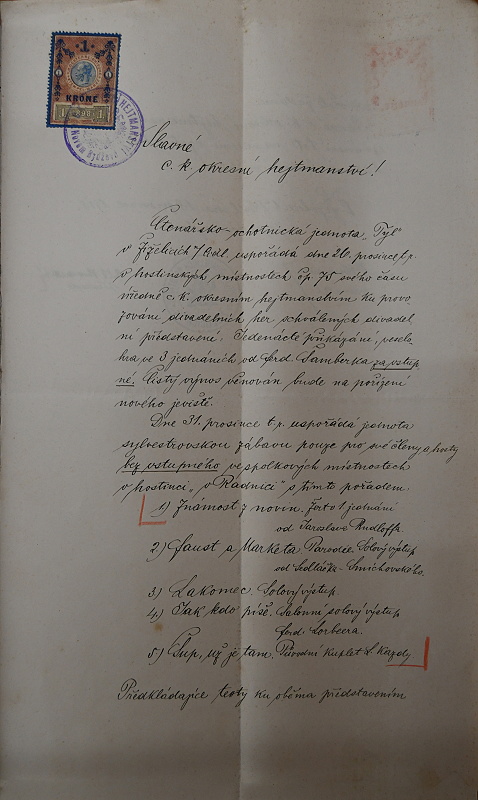 1
KRONE
1 898 1
HEJTMANSTVÍ
Slavné
c. k. okresní hejtmanství!
Čtenářsko-ochotnická jednota „Tyl"
v Žiželicích n/Cidl. uspořádá dne 26. prosince t. r.
v hostinských místnostech čp. 75 svého času
úředně c. k. okresním hejtmanstvím ku provo
zování divadelních her schválených divadel
ní představení: Jedenácté přikázání, vesel.
hra ve 3 jednáních od Ferd. Šamberka za vstup
né. Čistý výnos věnován bude na pořízení
nového jeviště.
Dne 31. prosince t. r. uspořádá jednota
sylvestrovskou zábavu pouze pro své členy a hosty
bez vstupného ve spolkových místnostech
v hostinci „v Radnici" s tímto pořadem:
1) Známost z novin. Žert o 1 jednání
od Jaroslava Rudloffa.
2) Faust a Markéta Parodie. Solový výstup
od Sedláčka-Smíchovského.
3) Lakomec. Solový výstup.
4) Jak kdo píše. Salonní solový výstup
Ferd. Lorbeera.
5) Ťup, už je tam. Původní kuplet L. Kazdy
Předkládajíce texty ku oběma představením